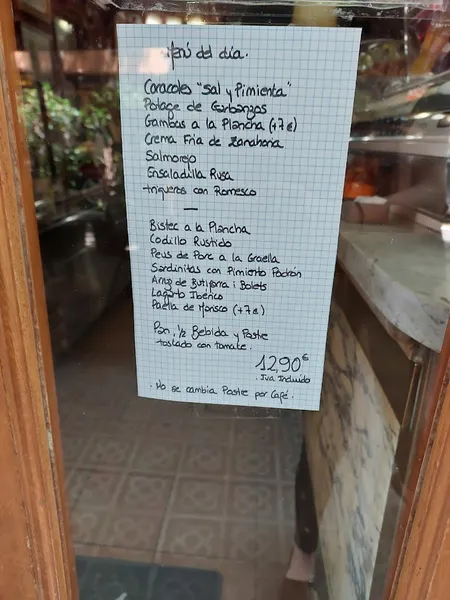 Menú del día.
Caracoles "Sal y Pimienta"
Potage de Garbanzos
Gambas a la Plancha (+7€)
Crema Fria de Zanahoria
Salmorejo
Ensaladilla Rusa
trigueros con Romesco
—
Bistec a la Plancha
Codillo Rustido
Peus de Porc a la Graella
Sardinitas con Pimiento Padrón
Arroz de Butifarra i Bolets
Lagarto Ibérico
Paella de Marisco (+7€)
Pan, 1/2 Bebida y Postre
tostado con tomate.
12,90€
. Iva Incluido
. No se cambia Postre por Café.